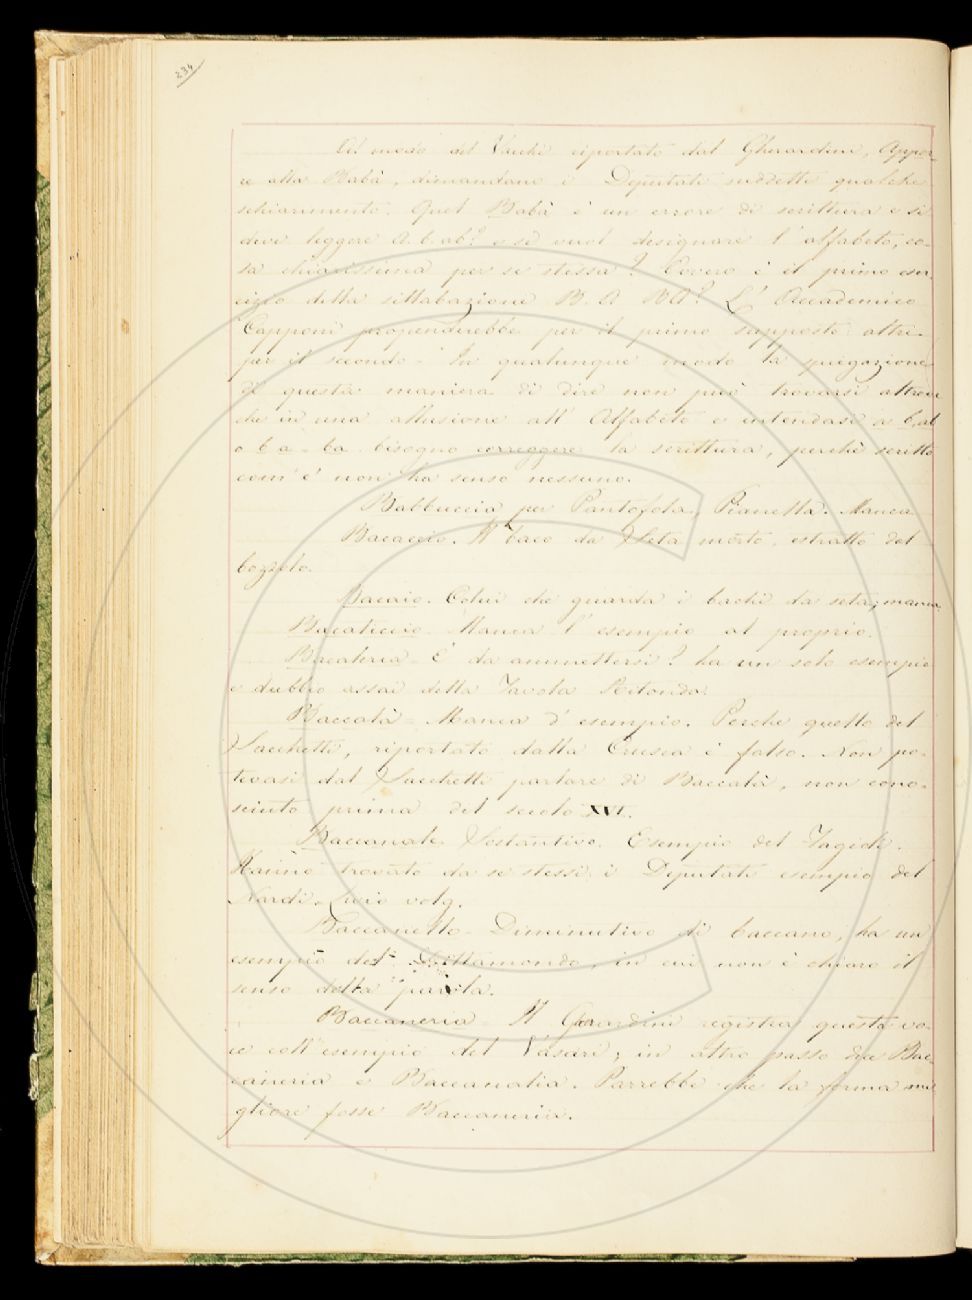 234
Al modo del Varchi riportato dal Gherardini, Appor-
re alla Babà, dimandano i Deputati suddetti qualche
schiarimento. Quel Babà è un errore di scrittura e si
deve leggere a. b. ab? e si vuol designare l'alfabeto, co-
sa chiarissima per se stessa? Ovvero è il primo eser-
cizio della sillabazione B. A BA? L'Accademico
Capponi propenderebbe per il primo supposto: altri
per il secondo - In qualunque modo la spiegazione
di questa maniera di dire non può trovarsi altrove
che in una allusione all'Alfabeto e intendasi a b, ab
o b a - ba bisogna correggere la scrittura, perchè scritto
com'è non ha senso nessuno.
Babbuccia per Pantofola, Pianella. Manca
Bacaccio. Il baco da Seta morto, estratto dal
bozzolo.
Bacaio. Colui che guarda i bachi da seta; manca
Bacaticcio. Manca l'esempio al proprio.
Bacaleria - È da ammettersi? ha un solo esempio
e dubbio assai della Tavola Ritonda.
Baccalà - Manca d'esempio. Perchè quello del
Sacchetti, riportato dalla Crusca è falso. Non po-
tevasi dal Sacchetti parlare di Baccalà, non cono-
sciuto prima del secolo XVI.
Baccanale Sostantivo. Esempio del Fagioli.
Hanno trovato da se stessi i Deputati esempio del
Nardi, Livio volg.
Baccanello - Diminutivo di baccano, ha un
esempio del Dittamondo, in cui non è chiaro il
senso della parola.
Baccaneria - Il Gherardini registra questa vo-
ce coll'esempio del Vasari; in altro passo dice Bac-
caneria e Baccanalia. Parrebbe che la forma mi-
gliore fosse Baccaneria.